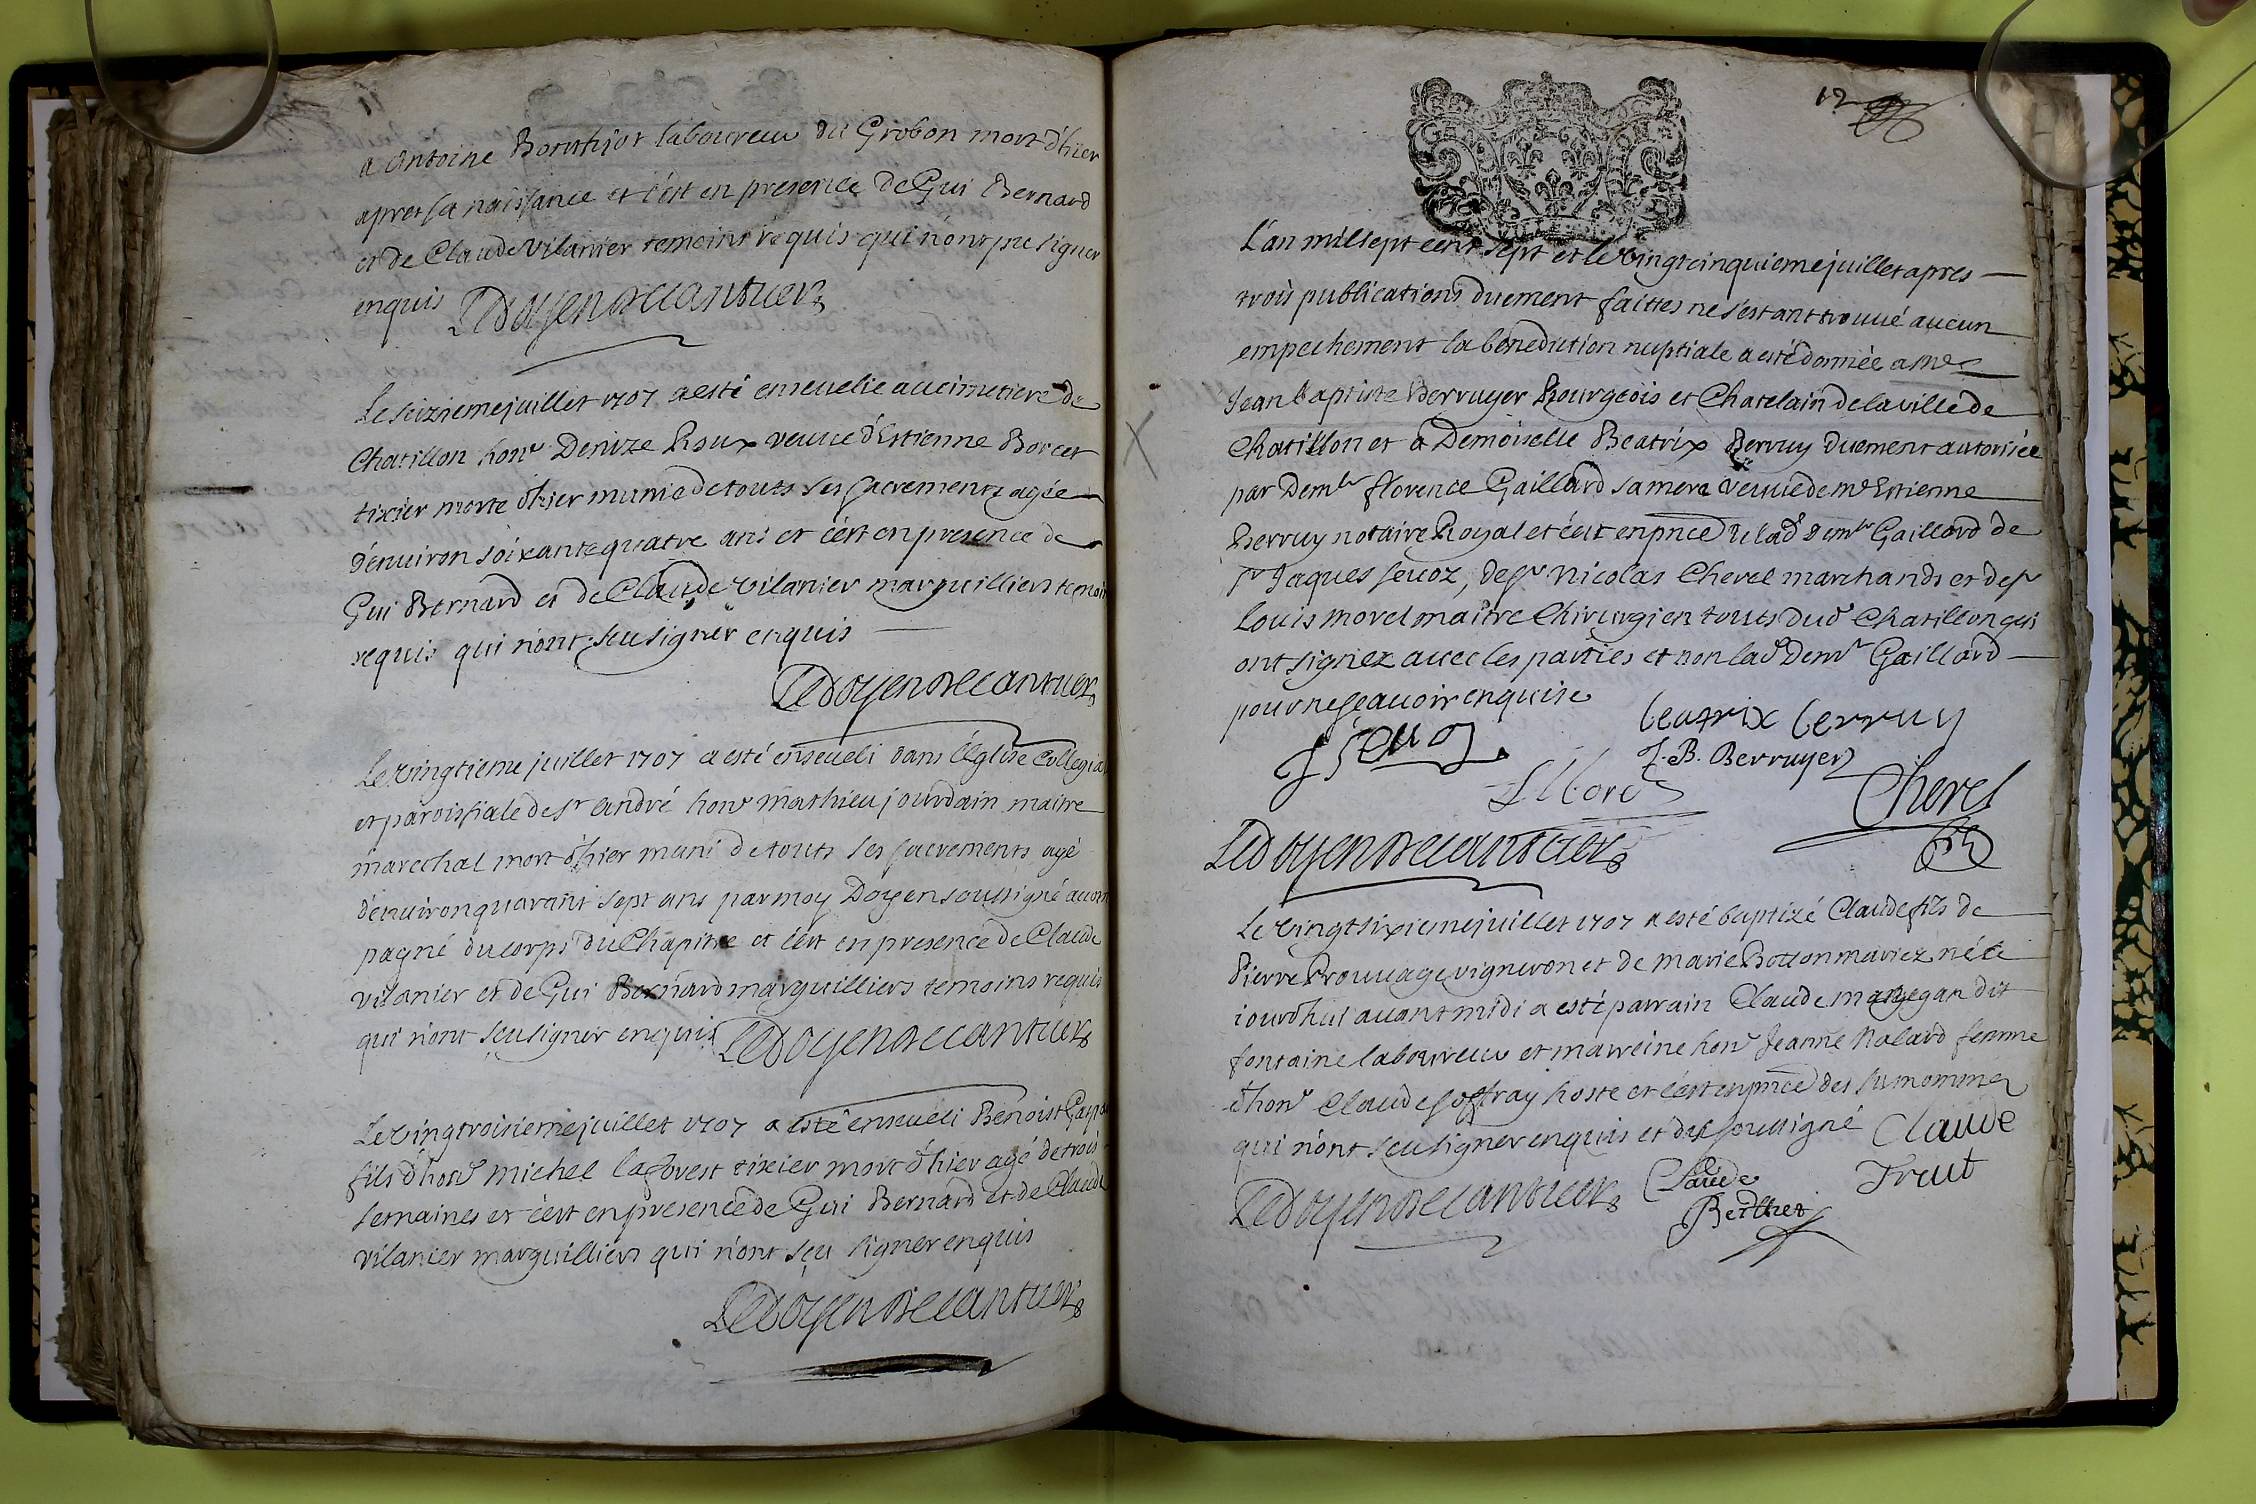 a Antoine laboureur du Grobon mort d'hier
apres sa naissance et c'est en presence de Gui Bernard
et de Claude Vilanier temoins requis qui n'ont pu signer
enquis Ledoyen Decantuer
Le seizieme juillet 1707 a esté ensevelie au cimetiere de
Chatillon hon^e Denize Roux veuve d'Estienne Borcet
tixier morte d'hier munie de touts ses sacrements agée
d'environ soixante quatre ans et c'est en presence de
Gui Bernard et de Claude Vilanier marguilliers temoins
requis qui n'ont seu signer enquis
Ledoyen Decantuer
Le vingtieme juillet 1707 a esté enseveli dans l'Eglise Collegia
et paroissiale de S^t André hon^e Mathieu jourdain maitre
marechal mort d'hier muni de touts ses sacrements agé
d'environ quarant sept ans par moy Doyen soussigné accom
pagné du corps du Chapitre et c'est en presence de Claude
vilanier et de Gui Bernard marguilliers temoins requis
qui n'ont seu signer enquis Ledoyen Decantuer
Le vingtroisieme juillet 1707 a esté enseveli Benoist
fils d'hon^e Michel laforest tixier mort d'hier agé de trois
semaines et c'est en presence de Gui Bernard et de Claude
vilanier marguilliers qui n'ont seu signer enquis
Ledoyen Decantuer
12
L'an mil sept cent sept et le vingt cinquieme juillet apres
trois publications duement faittes ne s'estant trouvé aucun
empechement la benediction nuptiale a esté donnée a M^e
Jean baptiste Berruyer Bourgeois et Chatelain de la ville de
Chatillon et a Demoiselle Beatrix Berruy duement autorisée
par Dem^lle florence Gaillard sa mere veuve de m^e Estienne
Berruy notaire Royal et c'est en pnce de lad^e dem^lle Gaillard de
s^r Jaques sevoz, de s^r Nicolas Cherel marchands et de s^r
Louis morel maitre Chirurgien touts dud^t Chatillon qui
ont signez avec les parties et non lad^e Dem^lle Gaillard
pour ne sçavoir enquise
beatrix berruy
J Sevoz
J. B. Berruyer
L Morel
Cherel
Ledoyen Decantuer
Le vingt sixieme juillet 1707 a esté baptizé Claude fils de
Pierre Prouvage vigneron et de Marie Botton mariez né ce
iourd'hui avant midi a esté parrain Claude dit
fontaine laboureur et marreine hon^e Jeanne Nalard femme
d'hon^e Claude joffray hoste et c'est en pnce des susnommez
qui n'ont seu signer enquis et des soussigné Claude
Trut
Claude
Berthet
Ledoyen Decantuer